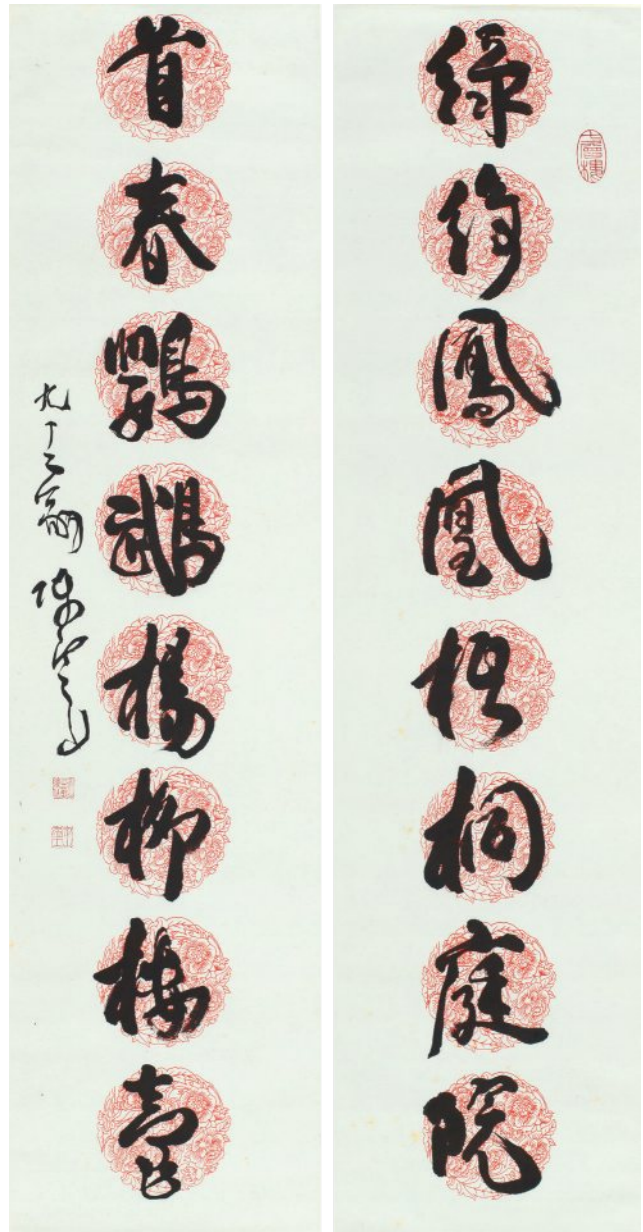 綠綺鳳凰梧桐庭院
青春鸚鵡楊柳樓臺
九十二翁陳定山